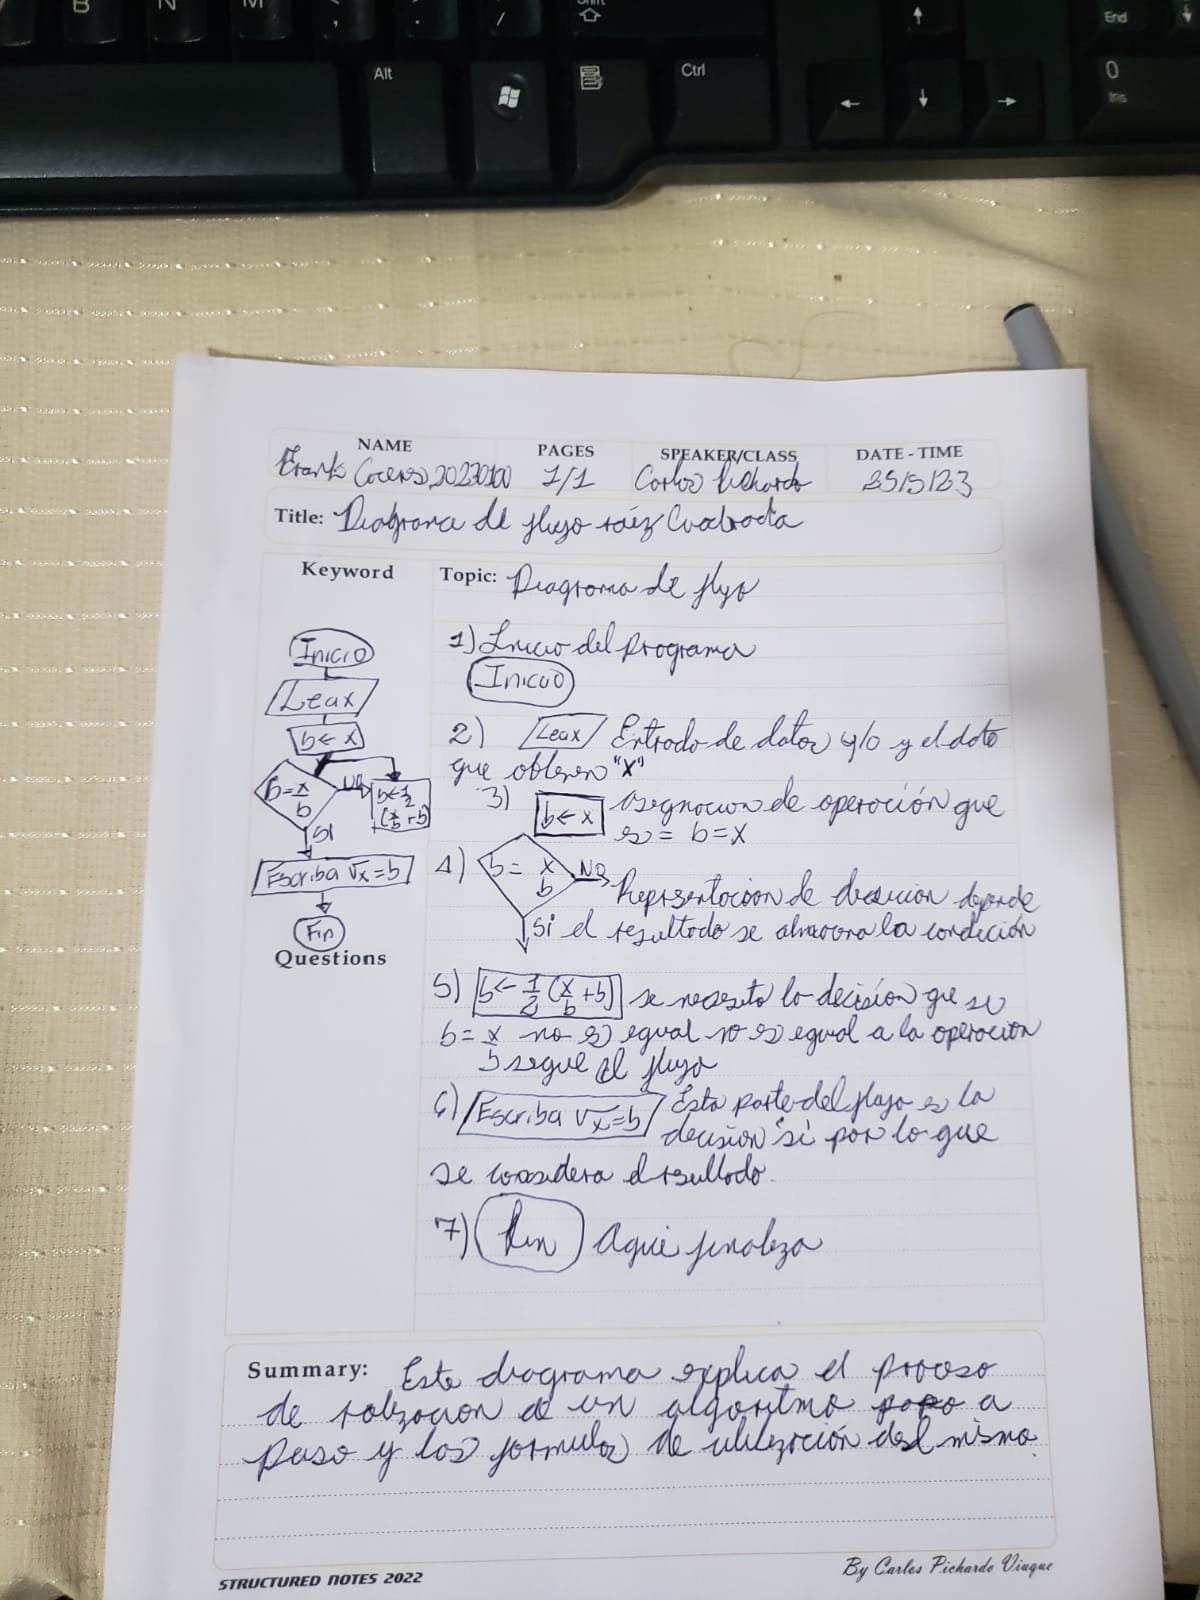 B N M
Alt
Ctrl
Shift
End
0
Ins
NAME PAGES SPEAKER/CLASS DATE - TIME
Frank 20230100 1/1 Carlos Pichardo 25/5/23
Title: Diagrama de flujo raíz Cuadrada
Keyword
Inicio
Lea x
b ← x
b = x/b
NO
b ← 1/2 (x/b + b)
SI
Escriba √x = b
Fin
Questions
Topic: Diagrama de flujo
1) Inicio del programa
Inicio
2) Lea x Entrada de datos y/o y el dato
que obtienen "x"
3) b ← x asignacion de operación que
es = b = x
4) b = x/b NO
Representacion de decision depende
Si el resultado se la condición
5) b ← 1/2 (x/b + b) se necesita la decisión que si
b = x/b no es igual no es igual a la operacion
sigue el flujo
6) Escriba √x = b Esta parte del flujo es la
decision si por lo que
se considera el resultado.
7) Fin Aqui finaliza
Summary: Este diagrama explica el proceso
de de un algoritmo paso a
paso y las formulas de utilización del mismo.
STRUCTURED NOTES 2022
By Carlos Pichardo Viuque